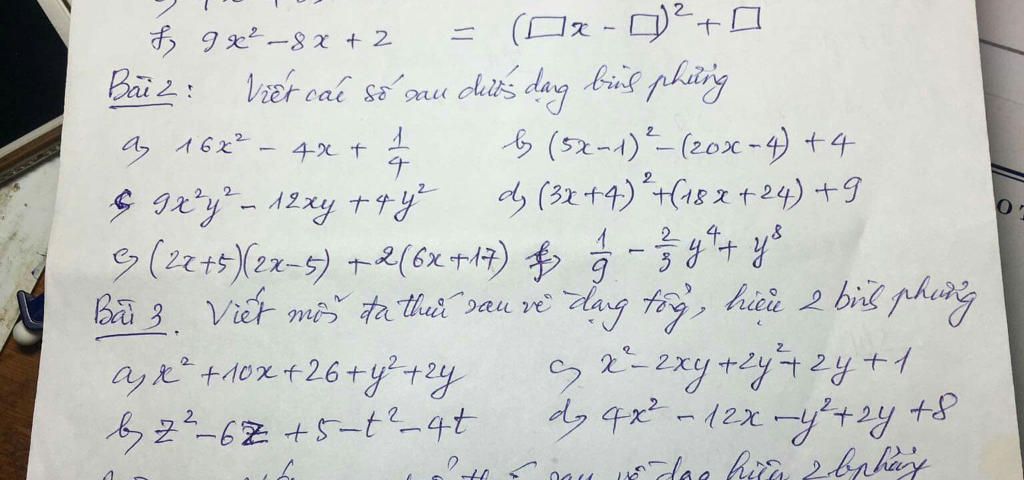 f, 9x² - 8x + 2 = (□x - □)² + □
Bài 2: Viết các số sau dưới dạng bình phương
a, 16x² - 4x + 1/4 b, (5x-1)² - (20x-4) + 4
c, 9x²y² - 12xy + 4y² d, (3x+4)² + (18x+24) + 9
e, (2x+5)(2x-5) + 2(6x+17) f, 1/9 - 2/3 y⁴ + y⁸
Bài 3. Viết mỗi đa thức sau về dạng tổng, hiệu 2 bình phương
a, x² + 10x + 26 + y² + 2y c, x² - 2xy + 2y² + 2y + 1
b, z² - 6z + 5 - t² - 4t d, 4x² - 12x - y² + 2y + 8
sau về dạng hiệu 2 b.phương